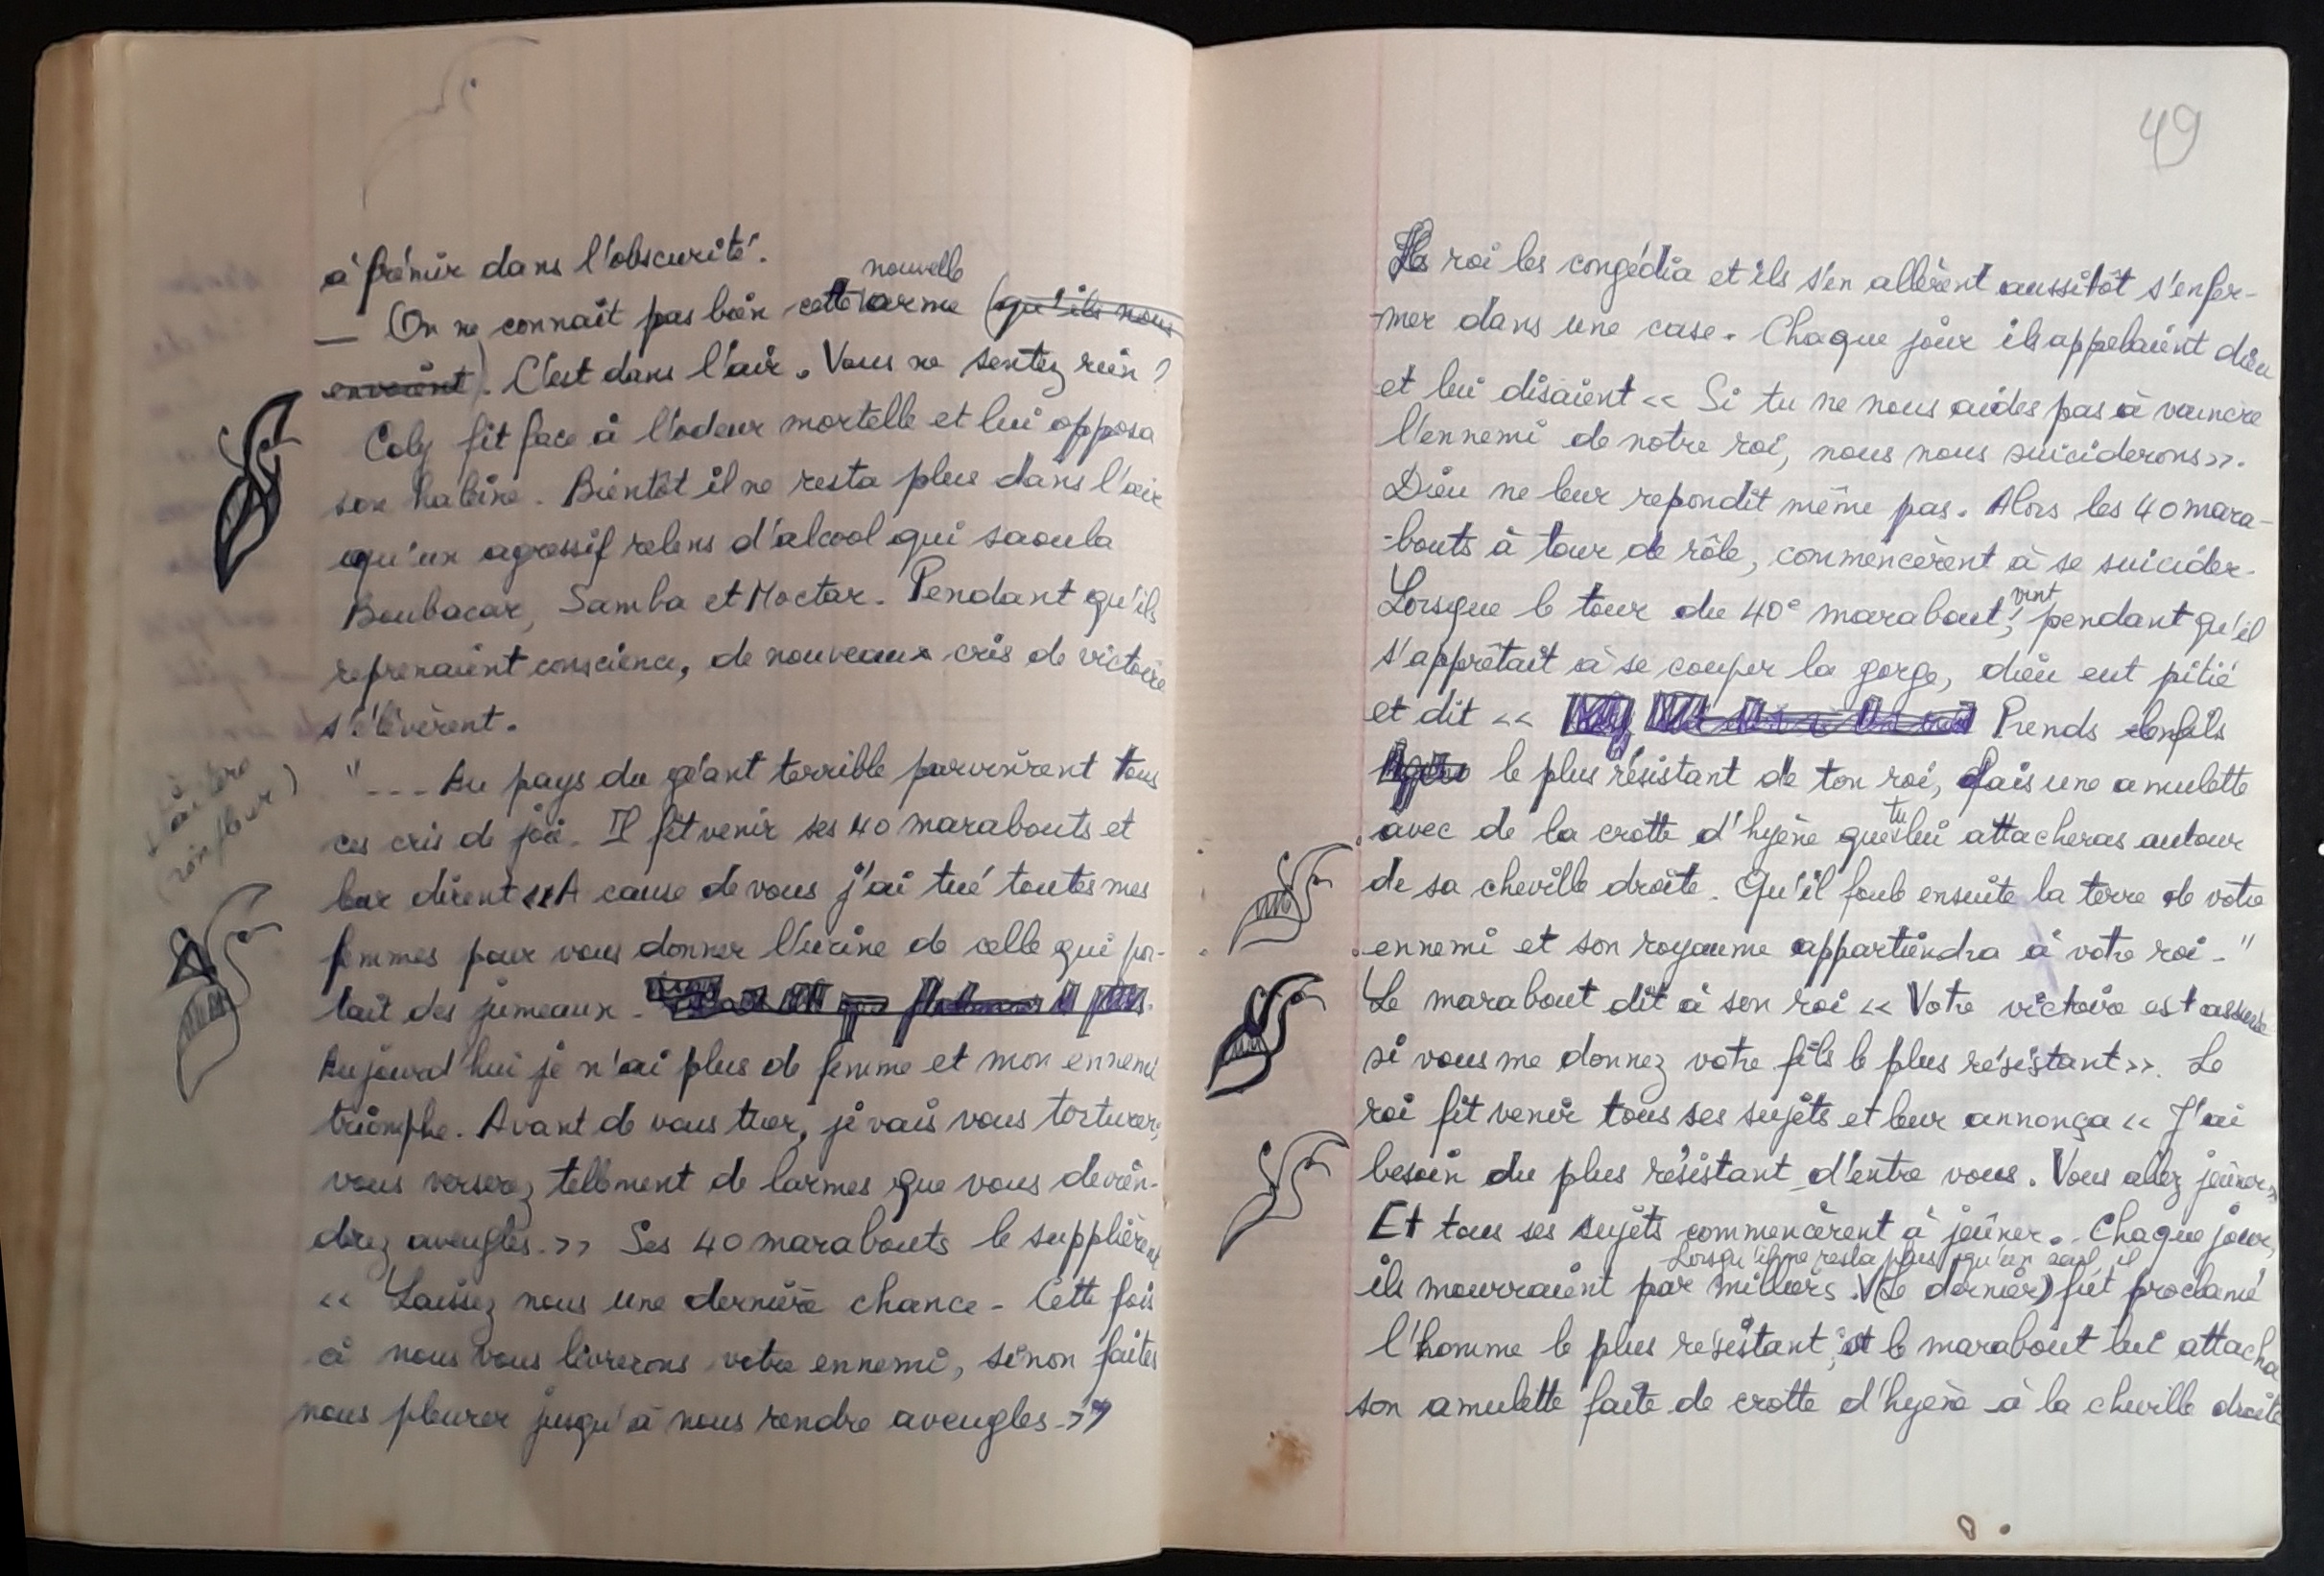 à frémir dans l'obscurité.
— On ne connait pas bien cette nouvelle arme (qu'ils nous
envoient). C'est dans l'air. Vous ne sentez rien ?
Coly fit face à l'odeur mortelle et lui opposa
son haleine. Bientôt il ne resta plus dans l'air
qu'un agressif relens d'alcool qui saoula
Boubacar, Samba et Moctar. Pendant qu'ils
reprenaient conscience, de nouveaux cris de victoire
s'élèvèrent.
"--- Au pays du géant terrible parvinrent tous
ces cris de joie. Il fit venir ses 40 marabouts et
leur dirent << A cause de vous j'ai tué toutes mes
femmes pour vous donner l'urine de celle qui por-
tait des jumeaux.
Aujourd'hui je n'ai plus de femme et mon ennemi
triomphe. Avant de vous tuer, je vais vous torturer,
vous verserez tellement de larmes que vous devien-
drez aveugles. >> Ses 40 marabouts le supplièrent
<< Laissez nous une dernière chance - Cette fois
ci nous vous livrerons votre ennemi, sinon faites
nous pleurer jusqu'à nous rendre aveugles ->>
49
Le roi les congédia et ils s'en allèrent aussitôt s'enfer-
-mer dans une case. Chaque jour ils appelaient dieu
et lui disaient << Si tu ne nous aides pas à vaincre
l'ennemi de notre roi, nous nous suiciderons >>.
Dieu ne leur repondit même pas. Alors les 40 mara-
-bouts à tour de rôle, commencèrent à se suicider.
Lorsque le tour du 40e marabout vint, pendant qu'il
s'apprêtait à se couper la gorge, dieu eut pitié
et dit << Prends le fils
le plus résistant de ton roi, fais une amulette
avec de la crotte d'hyène que tu lui attacheras autour
de sa cheville droite. Qu'il foule ensuite la terre de votre
ennemi et son royaume appartiendra à votre roi - "
Le marabout dit à son roi << Votre victoire est assurée
si vous me donnez votre fils le plus résistant >>. Le
roi fit venir tous ses sujets et leur annonça << J'ai
besoin du plus résistant d'entre vous. Vous allez jeûner >>
Et tous ses sujets commencèrent à jeûner. Chaque jour,
ils mourraient par milliers. Lorsqu'il ne resta plus qu'un seul, il (Le dernier) fut proclamé
l'homme le plus résistant, et le marabout lui attacha
son amulette faite de crotte d'hyène à la cheville droite